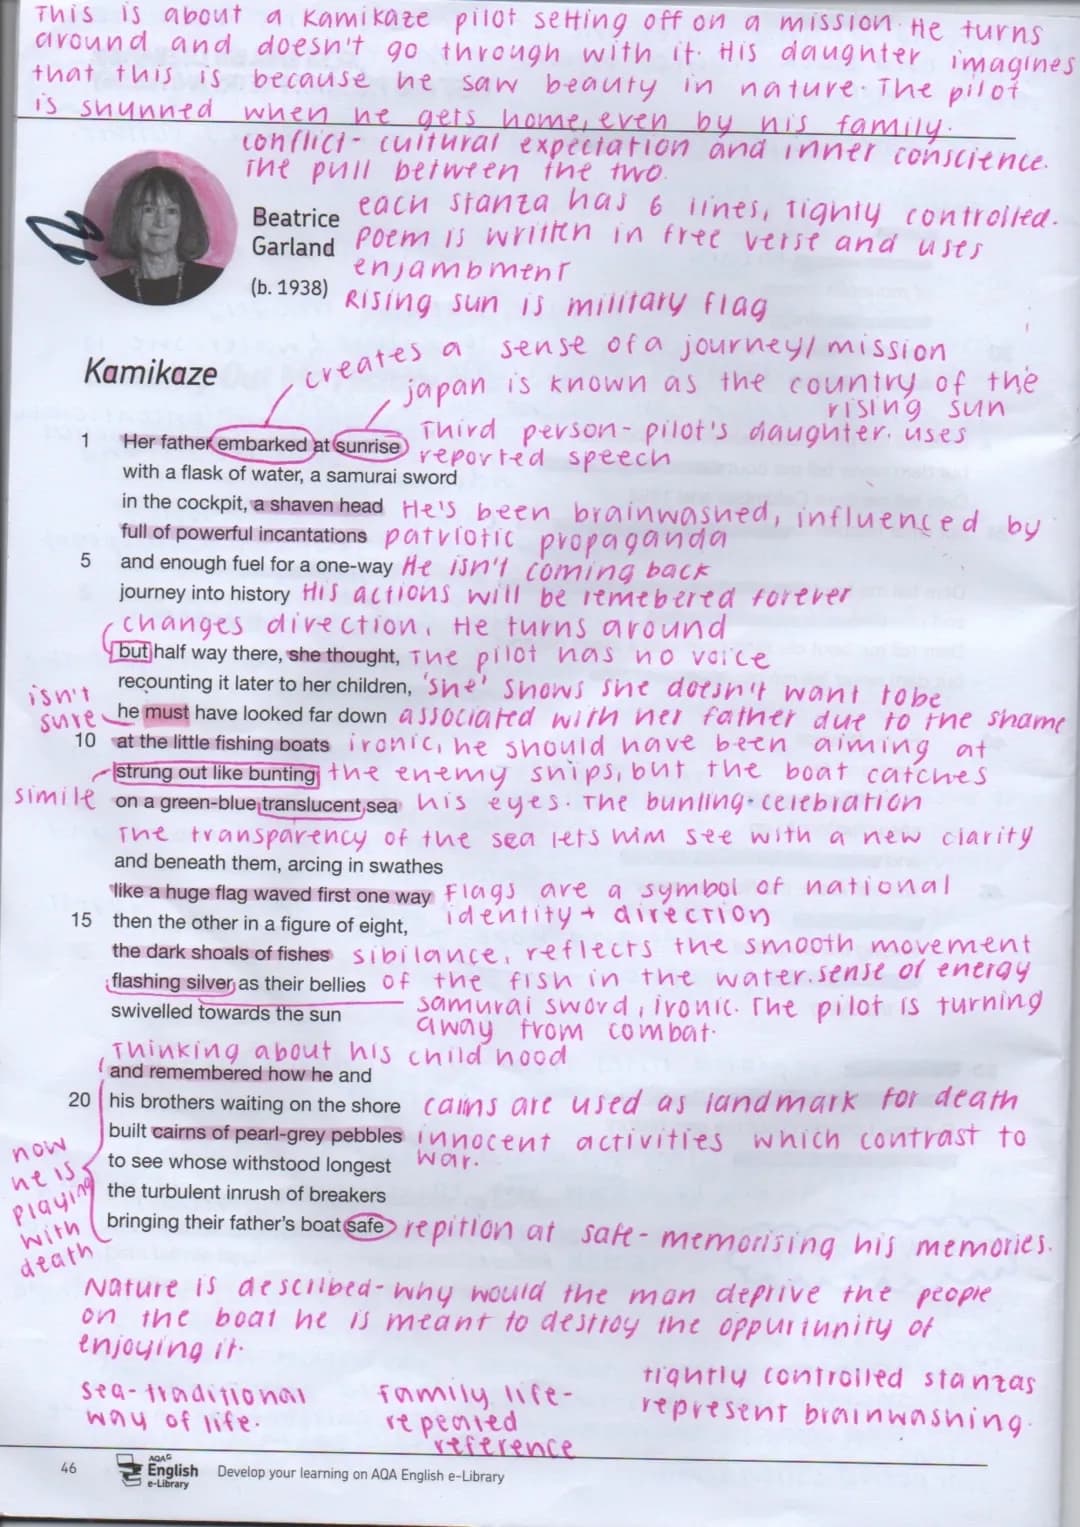 This is about a Kamikaze pilot setting off on a mission. He turns
around and doesn't go through with it. His daughter imagines
that this is because he saw beauty in nature. The pilot
is shunned when he gets home, even by his family.
conflict - cultural expectation and inner conscience.
The pull between the two.
Beatrice
Garland
(b. 1938)
each stanza has 6 lines, tightly controlled.
Poem is written in free verse and uses
enjambment
Rising sun is military flag
Kamikaze
creates a sense of a journey/mission
japan is known as the country of the
rising sun
1 Her father embarked at sunrise
Third person - pilot's daughter. uses
reported speech
with a flask of water, a samurai sword
in the cockpit, a shaven head He's been brainwashed, influenced by
full of powerful incantations patriotic propaganda
5 and enough fuel for a one-way He isn't coming back
journey into history His actions will be remebered forever
changes direction, He turns around
but half way there, she thought, The pilot has no voice
recounting it later to her children, 'she' shows she doesn't want to be
isn't
sure
he must have looked far down associated with her father due to the shame
10 at the little fishing boats ironic, he should have been aiming at
strung out like bunting the enemy ships, but the boat catches
simile
on a green-blue translucent sea his eyes. The bunling - celebration
The transparency of the sea lets him see with a new clarity
and beneath them, arcing in swathes
like a huge flag waved first one way Flags are a symbol of national
15 then the other in a figure of eight, identity + direction
the dark shoals of fishes sibilance, reflects the smooth movement
flashing silver as their bellies of the fish in the water. sense of energy
swivelled towards the sun samurai sword, ironic. The pilot is turning
away from combat.
Thinking about his child hood
and remembered how he and
20 his brothers waiting on the shore cairns are used as landmark for death
built cairns of pearl-grey pebbles innocent activities which contrast to
to see whose withstood longest war.
the turbulent inrush of breakers
now
he is
playing
with
death
bringing their father's boat safe repition at safe - memorising his memories.
Nature is described - why would the man deprive the people
on the boat he is meant to destroy the oppurtunity of
enjoying it.
sea - traditional
way of life.
family life -
repeated
reference
tightly controlled stanzas
represent brainwashing.
46
AQA
English
e-Library
Develop your learning on AQA English e-Library